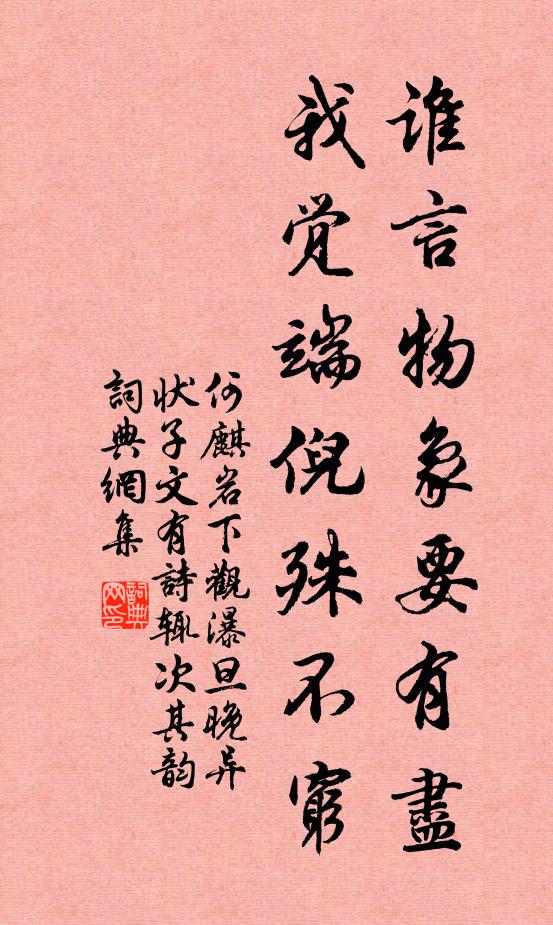 谁言物象要有盡
我觉端倪殊不窮
何麒岩下觀瀑旦晚异
状子文有詩辄次其韵
詞典網集
詞典
网印